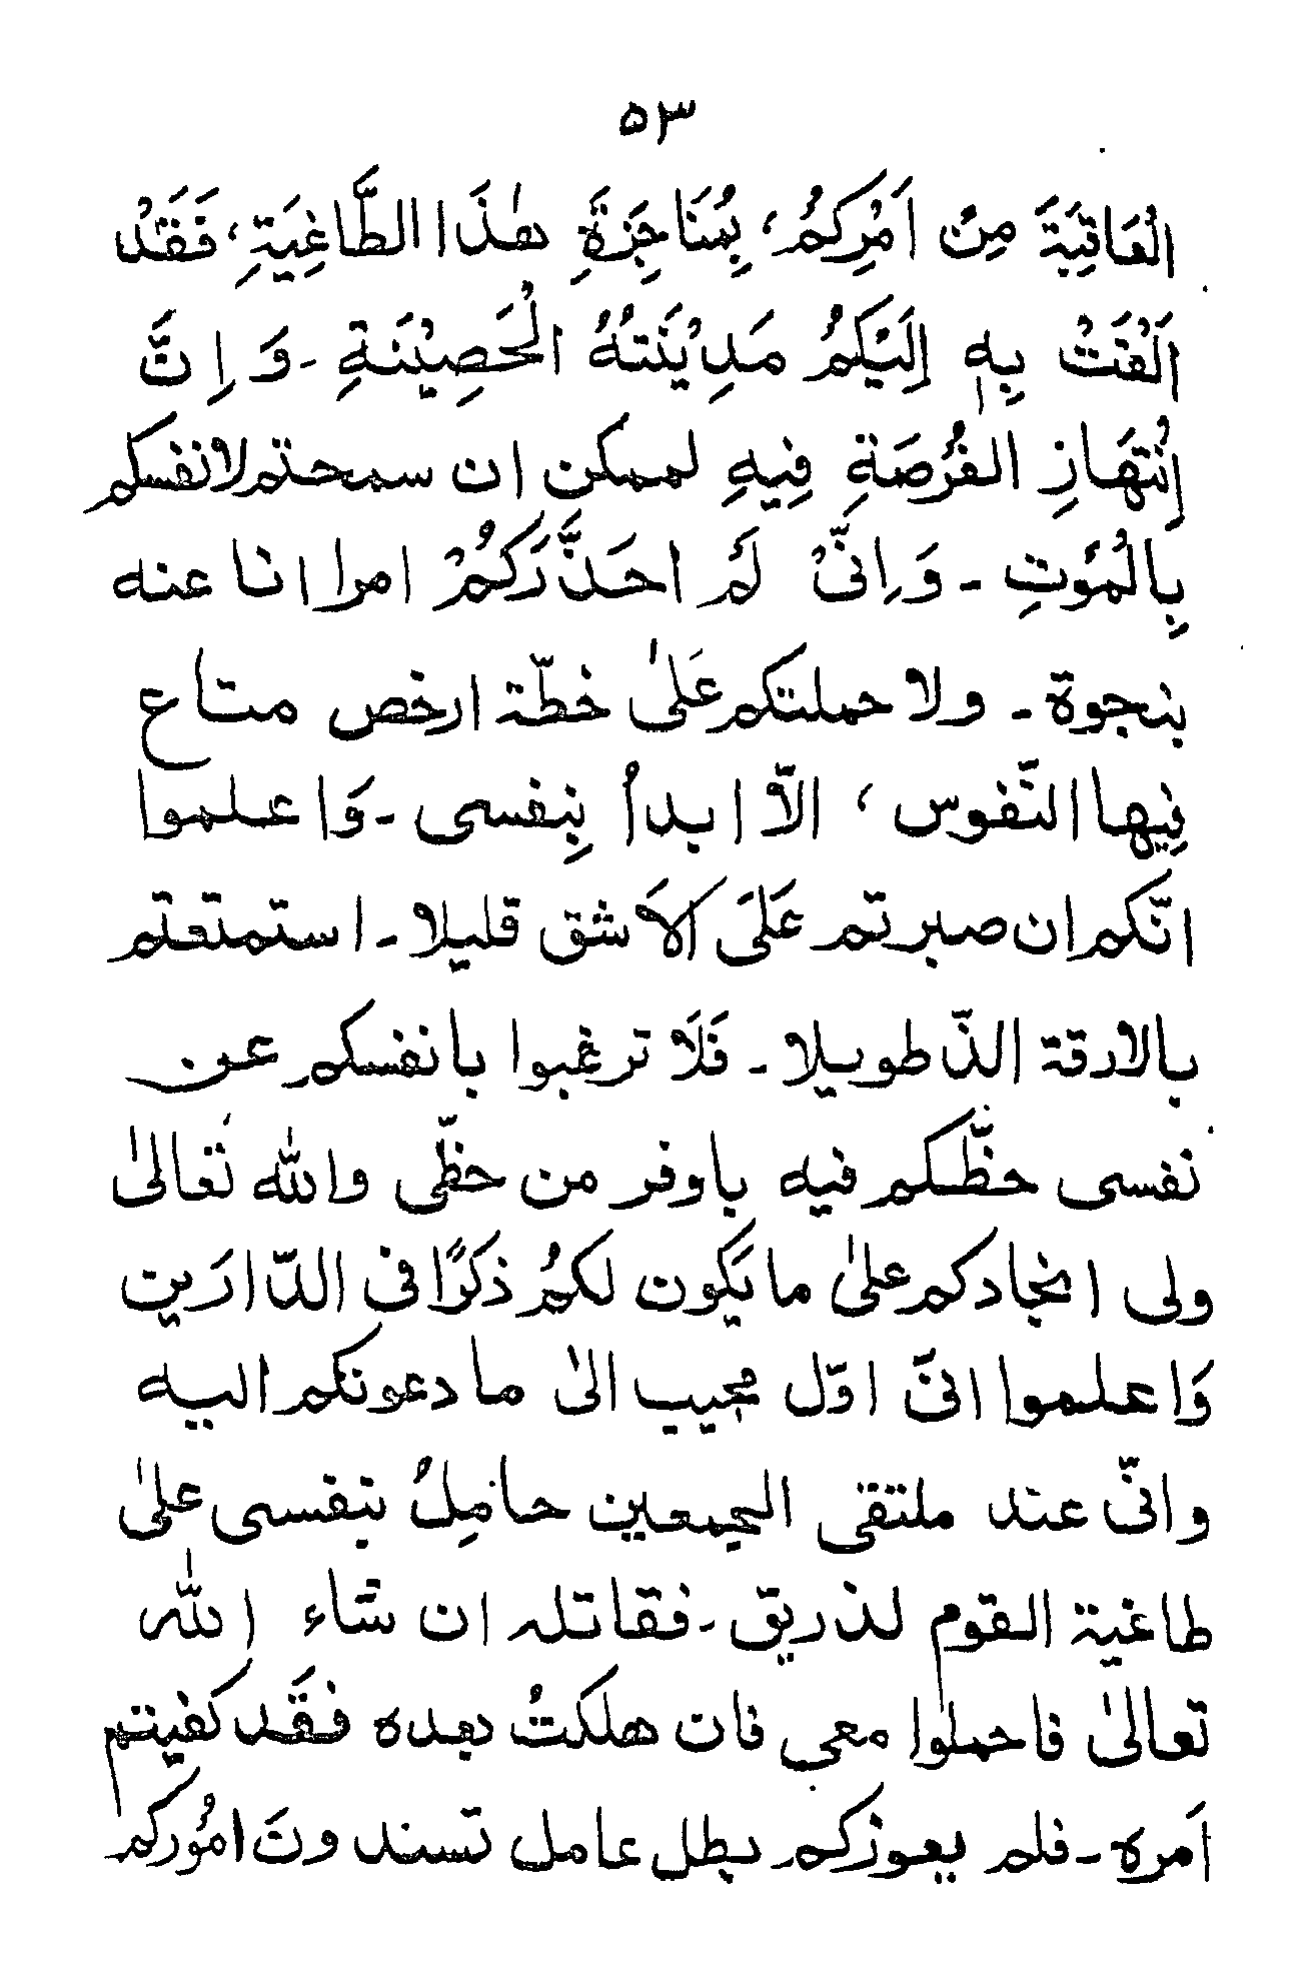 ۵۳
الْعَاقِبَةَ مِنْ اَمْرِكُمُ، بِمُنَاجِزَةِ هٰذَا الطَّاغِيَةِ، فَقَدْ
اَلْقَتْ بِهٖ اِلَيْكُمُ مَدِيْنَتُهُ الْحَصِيْنَةِ - وَ اِنَّ
اِنْتِهَازِ الفُرُصَةِ فِيهِ لممكن ان سمحتم لانفسكم
بِالْمَوْتِ - وَ اِنّىْ لَمْ احَذَّرَكُمْ امرا انا عنه
بنجوة - ولا حملتكم عَلىٰ خطّة ارخص متاع
فِيها النّفوس، الاّ ابدأُ بِنفسى - وَاعلموا
انّكم ان صبرتم عَلَى الاَشق قليلا - استمتعتم
بالارقة الذّ طويلا - فَلَا ترغبوا بانفسكم عن
نفسى حظّكم فيه باوفر من حظّى والله تعالىٰ
ولى انجادكم علىٰ ما يَكون لكمُ ذكرًا فى الدّارَين
وَاعلموا انىّ اوّل مجيب الىٰ ما دعوتكم اليه
وانىّ عند ملتقى الجمعين حامِلُ بنفسى علىٰ
طاغية القوم لذريق - فقاتله ان شاء الله
تعالىٰ فاحملوا معى فان هلكتُ بعده فقَد كفيتم
اَمره - فلم يعوزكم بطل عامل تسندونَ امُوركم